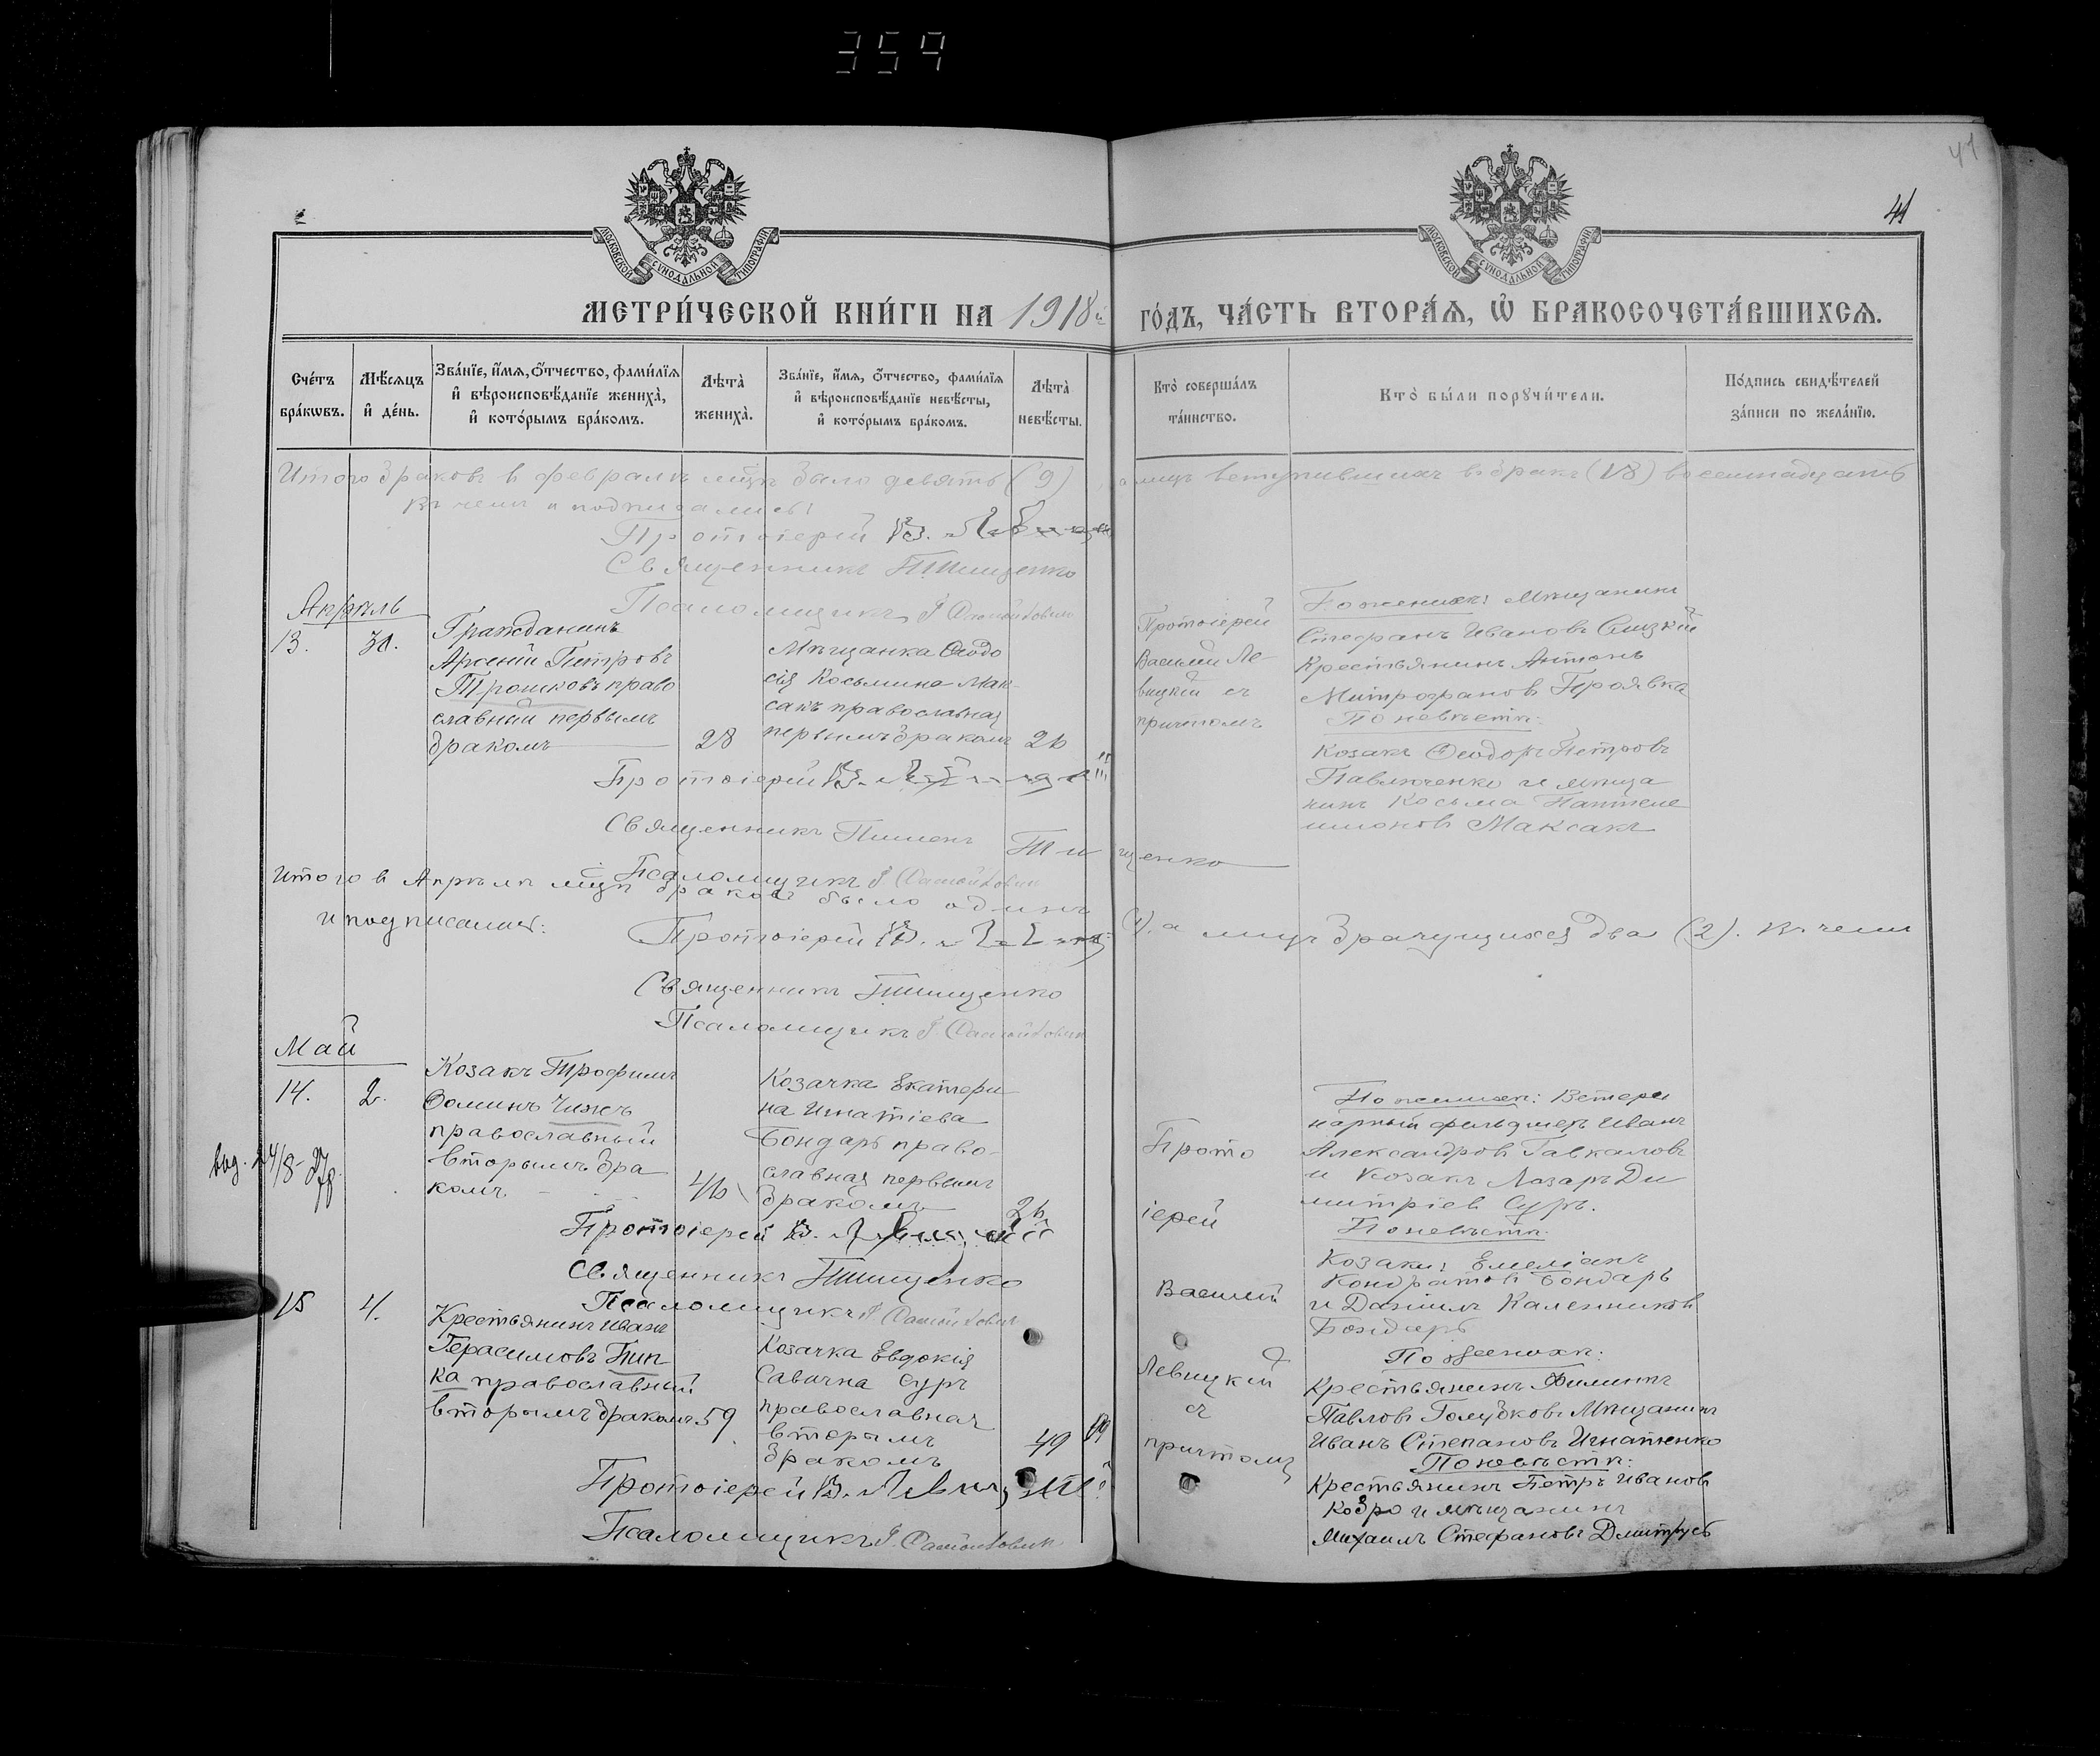 359
41
41
МОСКОВСКОЙ СѴНОДАЛЬНОЙ ТИПОГРАФІИ
МОСКОВСКОЙ СѴНОДАЛЬНОЙ ТИПОГРАФІИ
МЕТРИ́ЧЕСКОЙ КНИ́ГИ НА 1918й ГО́ДЪ, ЧА́СТЬ ВТОРА́Ѧ, Ѽ БРАКОСОЧЕТА́ВШИХСѦ.
Сче́тъ бра́кωвъ.
Мѣ́сѧцъ и҆ де́нь.
Зва́нїе, и҆́мѧ, ѻ҆́тчество, фами́лїѧ и҆ вѣроисповѣ́данїе жениха̀, и҆ кото́рымъ бра́комъ.
Лѣта̀ жениха̀.
Зва́нїе, и҆́мѧ, ѻ҆́тчество, фами́лїѧ и҆ вѣроисповѣ́данїе невѣ́сты, и҆ кото́рымъ бра́комъ.
Лѣта̀ невѣ́сты.
Кто̀ соверша́лъ та́инство.
Кто̀ бы́ли порꙋчи́тели.
По́дпись свидѣ́телей за́писи по жела́нїю.
Итого браковъ в февралѣ мцѣ было девять (9) а лицъ вступившихъ въ бракъ (18) восемнадцать
въ чемъ и подписались:
Протоіерей В. Левицкій
Священникъ П Тищенко
Псаломщикъ
Апрѣль
13.
30.
Гражданинъ
Арсеній Петровъ
Трошковъ право
славный первымъ
бракомъ
28
Мѣщанка Ѳеодо
сія Косьмина Мак
сакъ православная
первымъ бракомъ
26
Протоіерей
Василій Ле-
вицкій съ
причтомъ
По женихѣ: Мѣщанинъ
Стефанъ Ивановъ
Крестьянинъ Антонъ
Митрофановъ Проявка
По невѣстѣ:
Козакъ Ѳеодоръ Петровъ
Павлюченко и мѣща
нинъ Косьма Пантеле
имоновъ Максакъ
Протоіерей В. Левицкій
Священникъ Пименъ Тищенко
Псаломщикъ
Итого в Апрѣлѣ мцѣ браковъ было одинъ (1). а лицъ брачущихся два (2). Въ чемъ
и подписались:
Протоіерей В. Левицкій
Священникъ П Тищенко
Псаломщикъ
Май
14.
2.
Козакъ Трофимъ
Ѳоминъ Чижъ
православный
вторымъ бра
комъ
46
Козачка Екатери
на Игнатіева
Бондарь право-
славная первымъ
бракомъ
26
По женихѣ: Ветери
нарный фельдшеръ Иванъ
Александровъ Гавкаловъ
и Козакъ Лазарь Ди
митріев Суръ.
По невѣстѣ:
Козаки: Емеліанъ
Кондратовъ Бондарь
и Даніилъ Каленниковъ
Бондарь
Протоіерей В. Левицкій
Священникъ П Тищенко
Псаломщикъ
15
4.
Крестьянинъ Иванъ
Герасимовъ Пип
ка православный
вторымъ бракомъ
59
Козачка Евдокія
Савична Суръ
православная
вторымъ
бракомъ
49
Прото
іерей
Василій
Левицкій
съ
причтомъ
По женихѣ:
Крестьянинъ Филиппъ
Павловъ Голубковъ Мѣщанинъ
Иванъ Степановъ Игнатенко
По невѣстѣ:
Крестьянинъ Петръ Ивановъ
Кобро и мѣщанинъ
Михаилъ Стефановъ Дмитрусь
Протоіерей В. Левицкій
Псаломщикъ